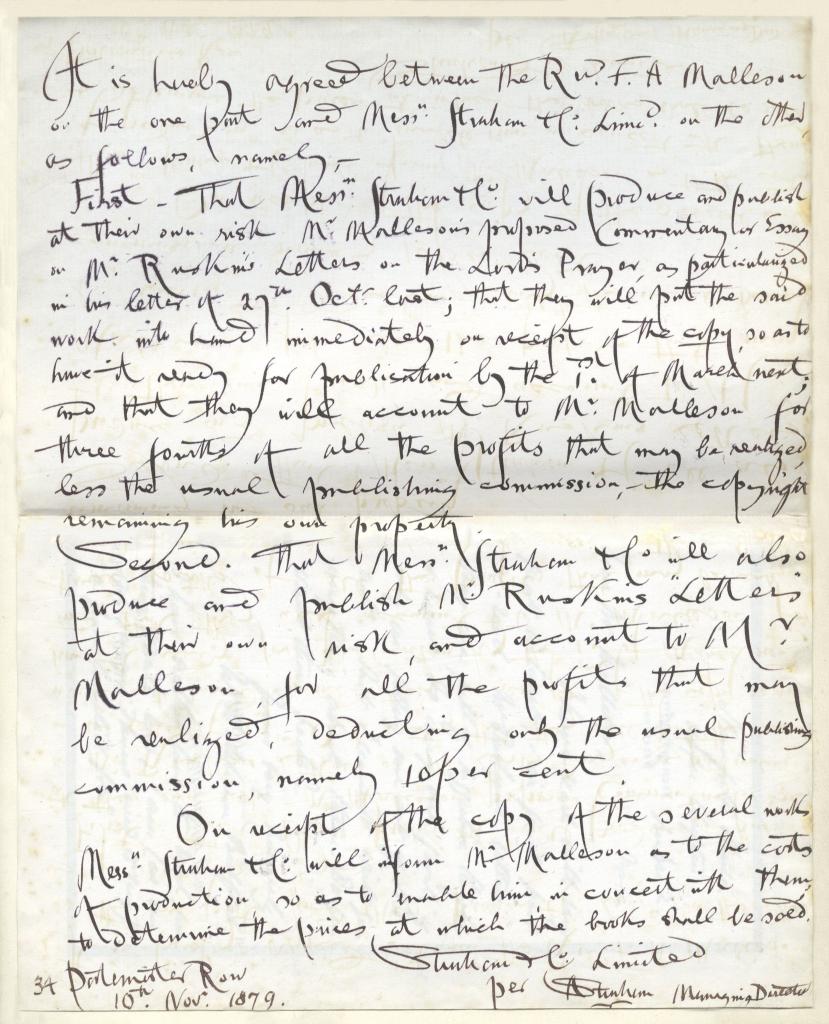 It is hereby agreed between the Rev. F. A Malleson
on the one part and Messrs. Strahan & Co. Limd. on the other,
as follows, namely,—
First – That Messrs. Strahan & Co. will produce and publish
at their own risk Mr. Malleson's proposed Commentary or Essay
on Mr. Ruskin's Letters on the Lord's Prayer, as particularized
in his letter of 27th. Octr. last; that they will put the said
work into hand immediately on receipt of the copy, so as to
have it ready for publication by the 1st. of March next;
and that they will account to Mr. Malleson for
three fourths of all the profits that may be realized,
less the usual publishing commission,–the copyright
remaining his own property.
Second. That Messrs. Strahan & Co will also
produce and publish Mr. Ruskin's "Letters"
at their own risk, and account to Mr
Malleson, for all the profits that may
be realized, deducting only the usual publishing
commission, namely 10 per cent.
On receipt of the copy of the several works
Messrs. Strahan & Co. will inform Mr. Malleson as to the costs
of production so as to enable him in concert with them,
to determine the prices at which the books shall be sold.
Strahan & Co. Limited
34 Paternoster Row
per A Strahan Managing Director
10th. Novr. 1879.